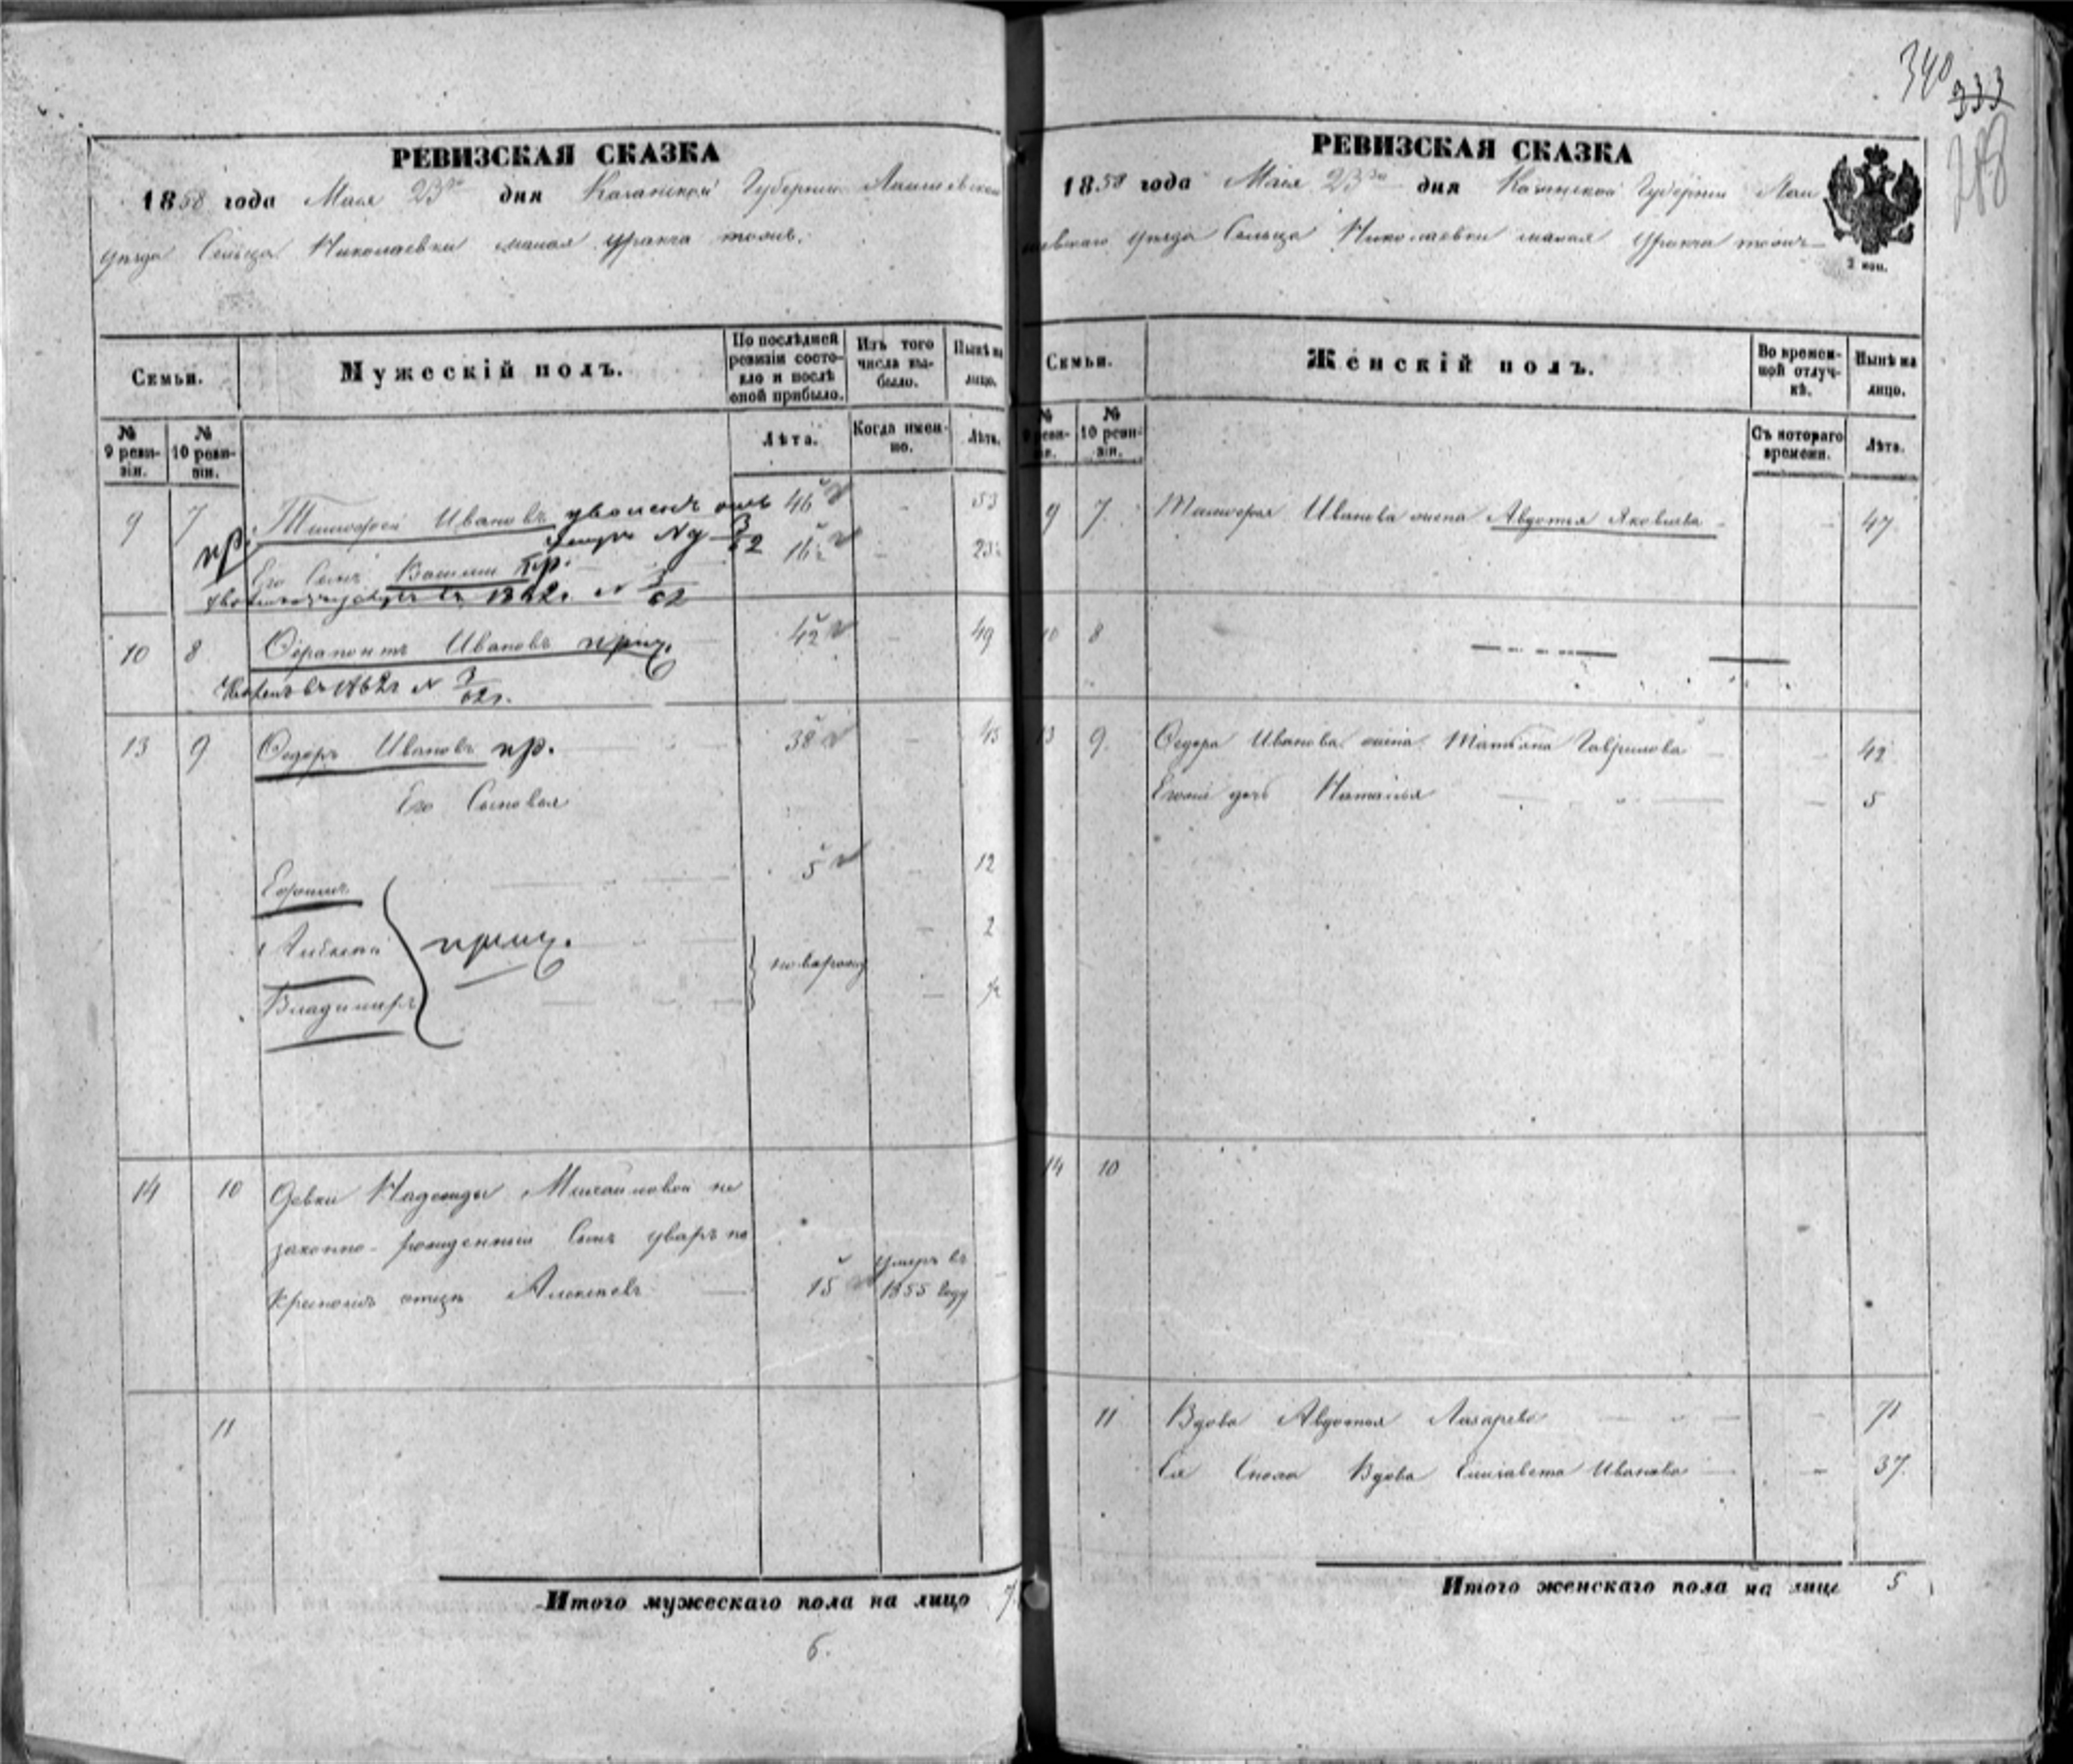 РЕВИЗСКАЯ СКАЗКА
1858 года Мая 23го дня Казанской Губернии Лаишевскаго
уезда Сельца Николаевки малая Уранча тожъ.
Семьи.
Мужескій полъ.
По послѣдней ревизіи состояло и послѣ оной прибыло.
Изъ того числа выбыло.
Нынѣ на лицо.
№ 9 ревизіи.
№ 10 ревизіи.
Лѣта.
Когда именно.
Лѣта.
9 7 Тимофей Ивановъ уволенъ 46 - 53
пр. № 3/62
Его Сынъ Василий пр. 16½ - 23½
въ 1862г № 3/62
10 8 Ферапонтъ Ивановъ прич. 42 - 49
въ 1862г № 3/62г.
13 9 Федоръ Ивановъ пр. 38 - 45
Его Сыновья
Ефимъ 5 - 12
Алексей - 2
прич.
новорожд
Владимиръ - ½
14 10 Девки Надежды Михайловой не
законно-рожденный Сынъ Уваръ по
Крестномъ отцѣ Алексеевъ 15 умеръ въ 1855 году -
11
Итого мужескаго пола на лицо 7.
6.
340
333
288
РЕВИЗСКАЯ СКАЗКА
1858 года Мая 23го дня Казанской Губернии Лаи
шевскаго уезда Сельца Николаевки малая Уранча тожъ
2 коп.
Семьи.
Женскій полъ.
Во временной отлучкѣ.
Нынѣ на лицо.
№ 9 ревизіи.
№ 10 ревизіи.
Съ котораго времени.
Лѣта.
9 7. Тимофея Иванова жена Авдотья Яковлева - 47
10 8
13 9. Федора Иванова жена Татьяна Гаврилова - 42
дочь Наталья - 5
14 10
11 Вдова Авдотья Лазарева - 71
Ея Сноха Вдова Елизавета Иванова - 37.
Итого женскаго пола на лице 5